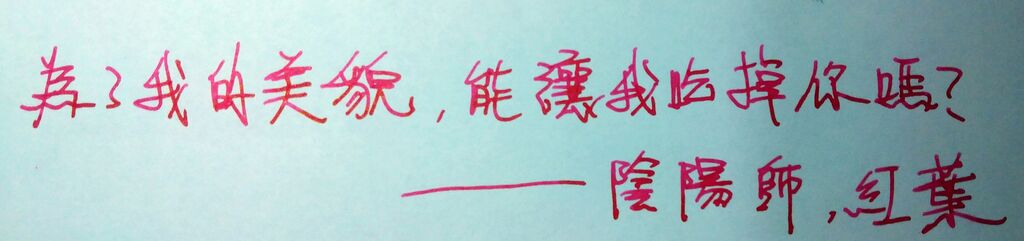 為了我的美貌,能讓我吃掉你嗎?
——陰陽師,紅葉